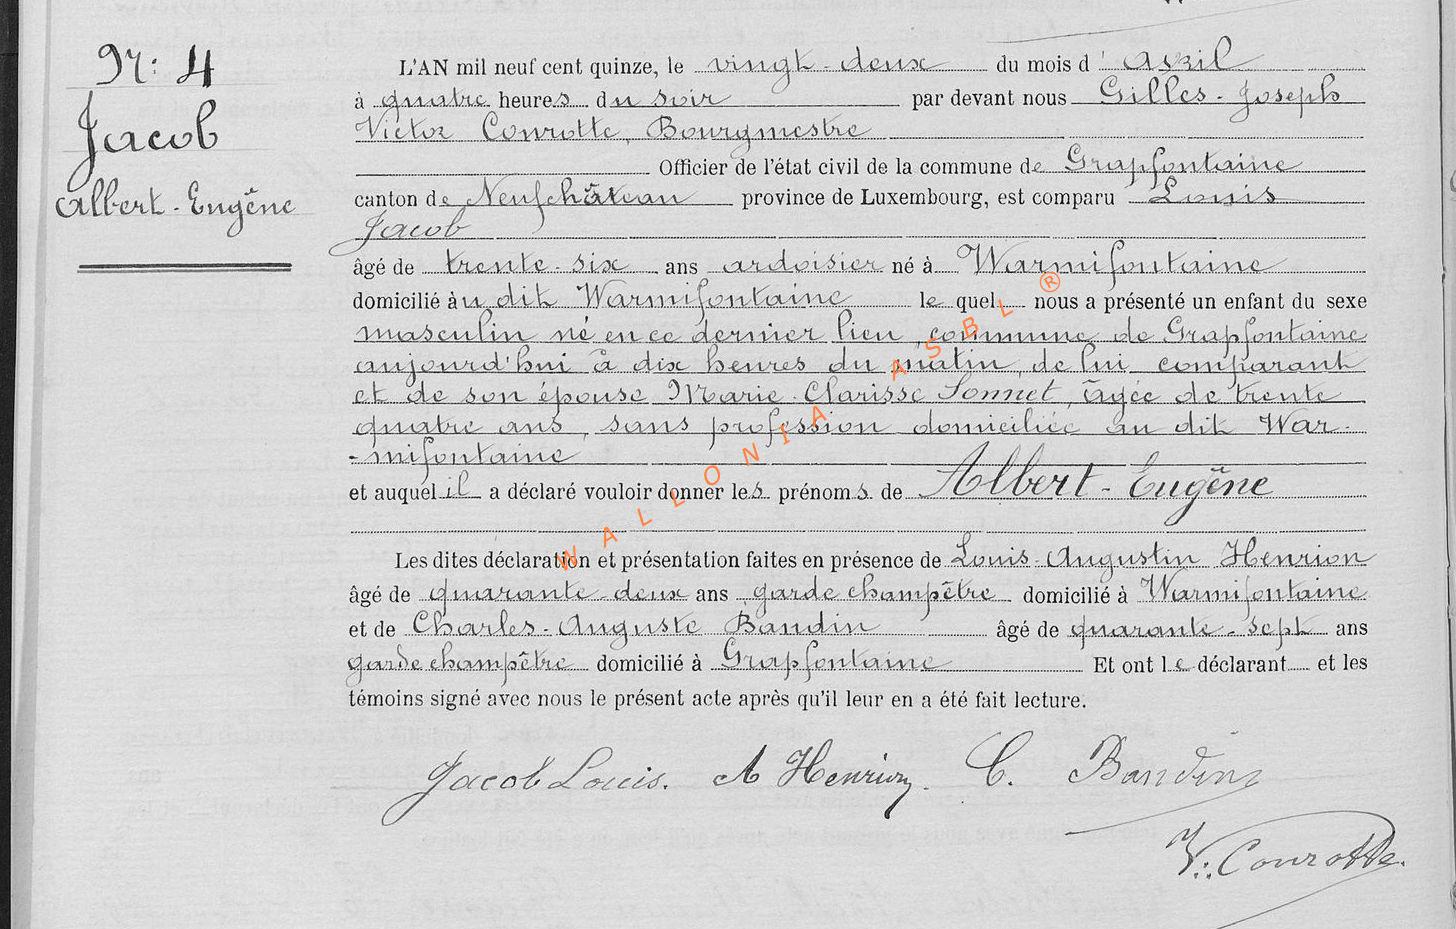 N°: 4
Jacob
Albert-Eugène
L'AN mil neuf cent quinze, le vingt-deux du mois d'Avril
à quatre heures du soir par devant nous Gilles-Joseph
Victor Conrotte, Bourgmestre
Officier de l'état civil de la commune de Grapfontaine
canton de Neufchâteau province de Luxembourg, est comparu Louis
Jacob
âgé de trente-six ans ardoisier né à Warmifontaine
domicilié àu dit Warmifontaine le quel nous a présenté un enfant du sexe
masculin né en ce dernier lieu, commune de Grapfontaine
aujourd'hui à dix heures du matin, de lui comparant
et de son épouse Marie-Clarisse Sonnet, âgée de trente
quatre ans, sans profession domiciliée au dit War-
-mifontaine
et auquel il a déclaré vouloir donner les prénoms de Albert-Eugène
Les dites déclaration et présentation faites en présence de Louis-Augustin Henrion
âgé de quarante-deux ans garde champêtre domicilié à Warmifontaine
et de Charles-Auguste Baudin âgé de quarante-sept ans
garde champêtre domicilié à Grapfontaine Et ont le déclarant et les
témoins signé avec nous le présent acte après qu'il leur en a été fait lecture.
Jacob Louis. A Henrion. C. Baudin
V: Conrotte.
WALLONIA ASBL ®